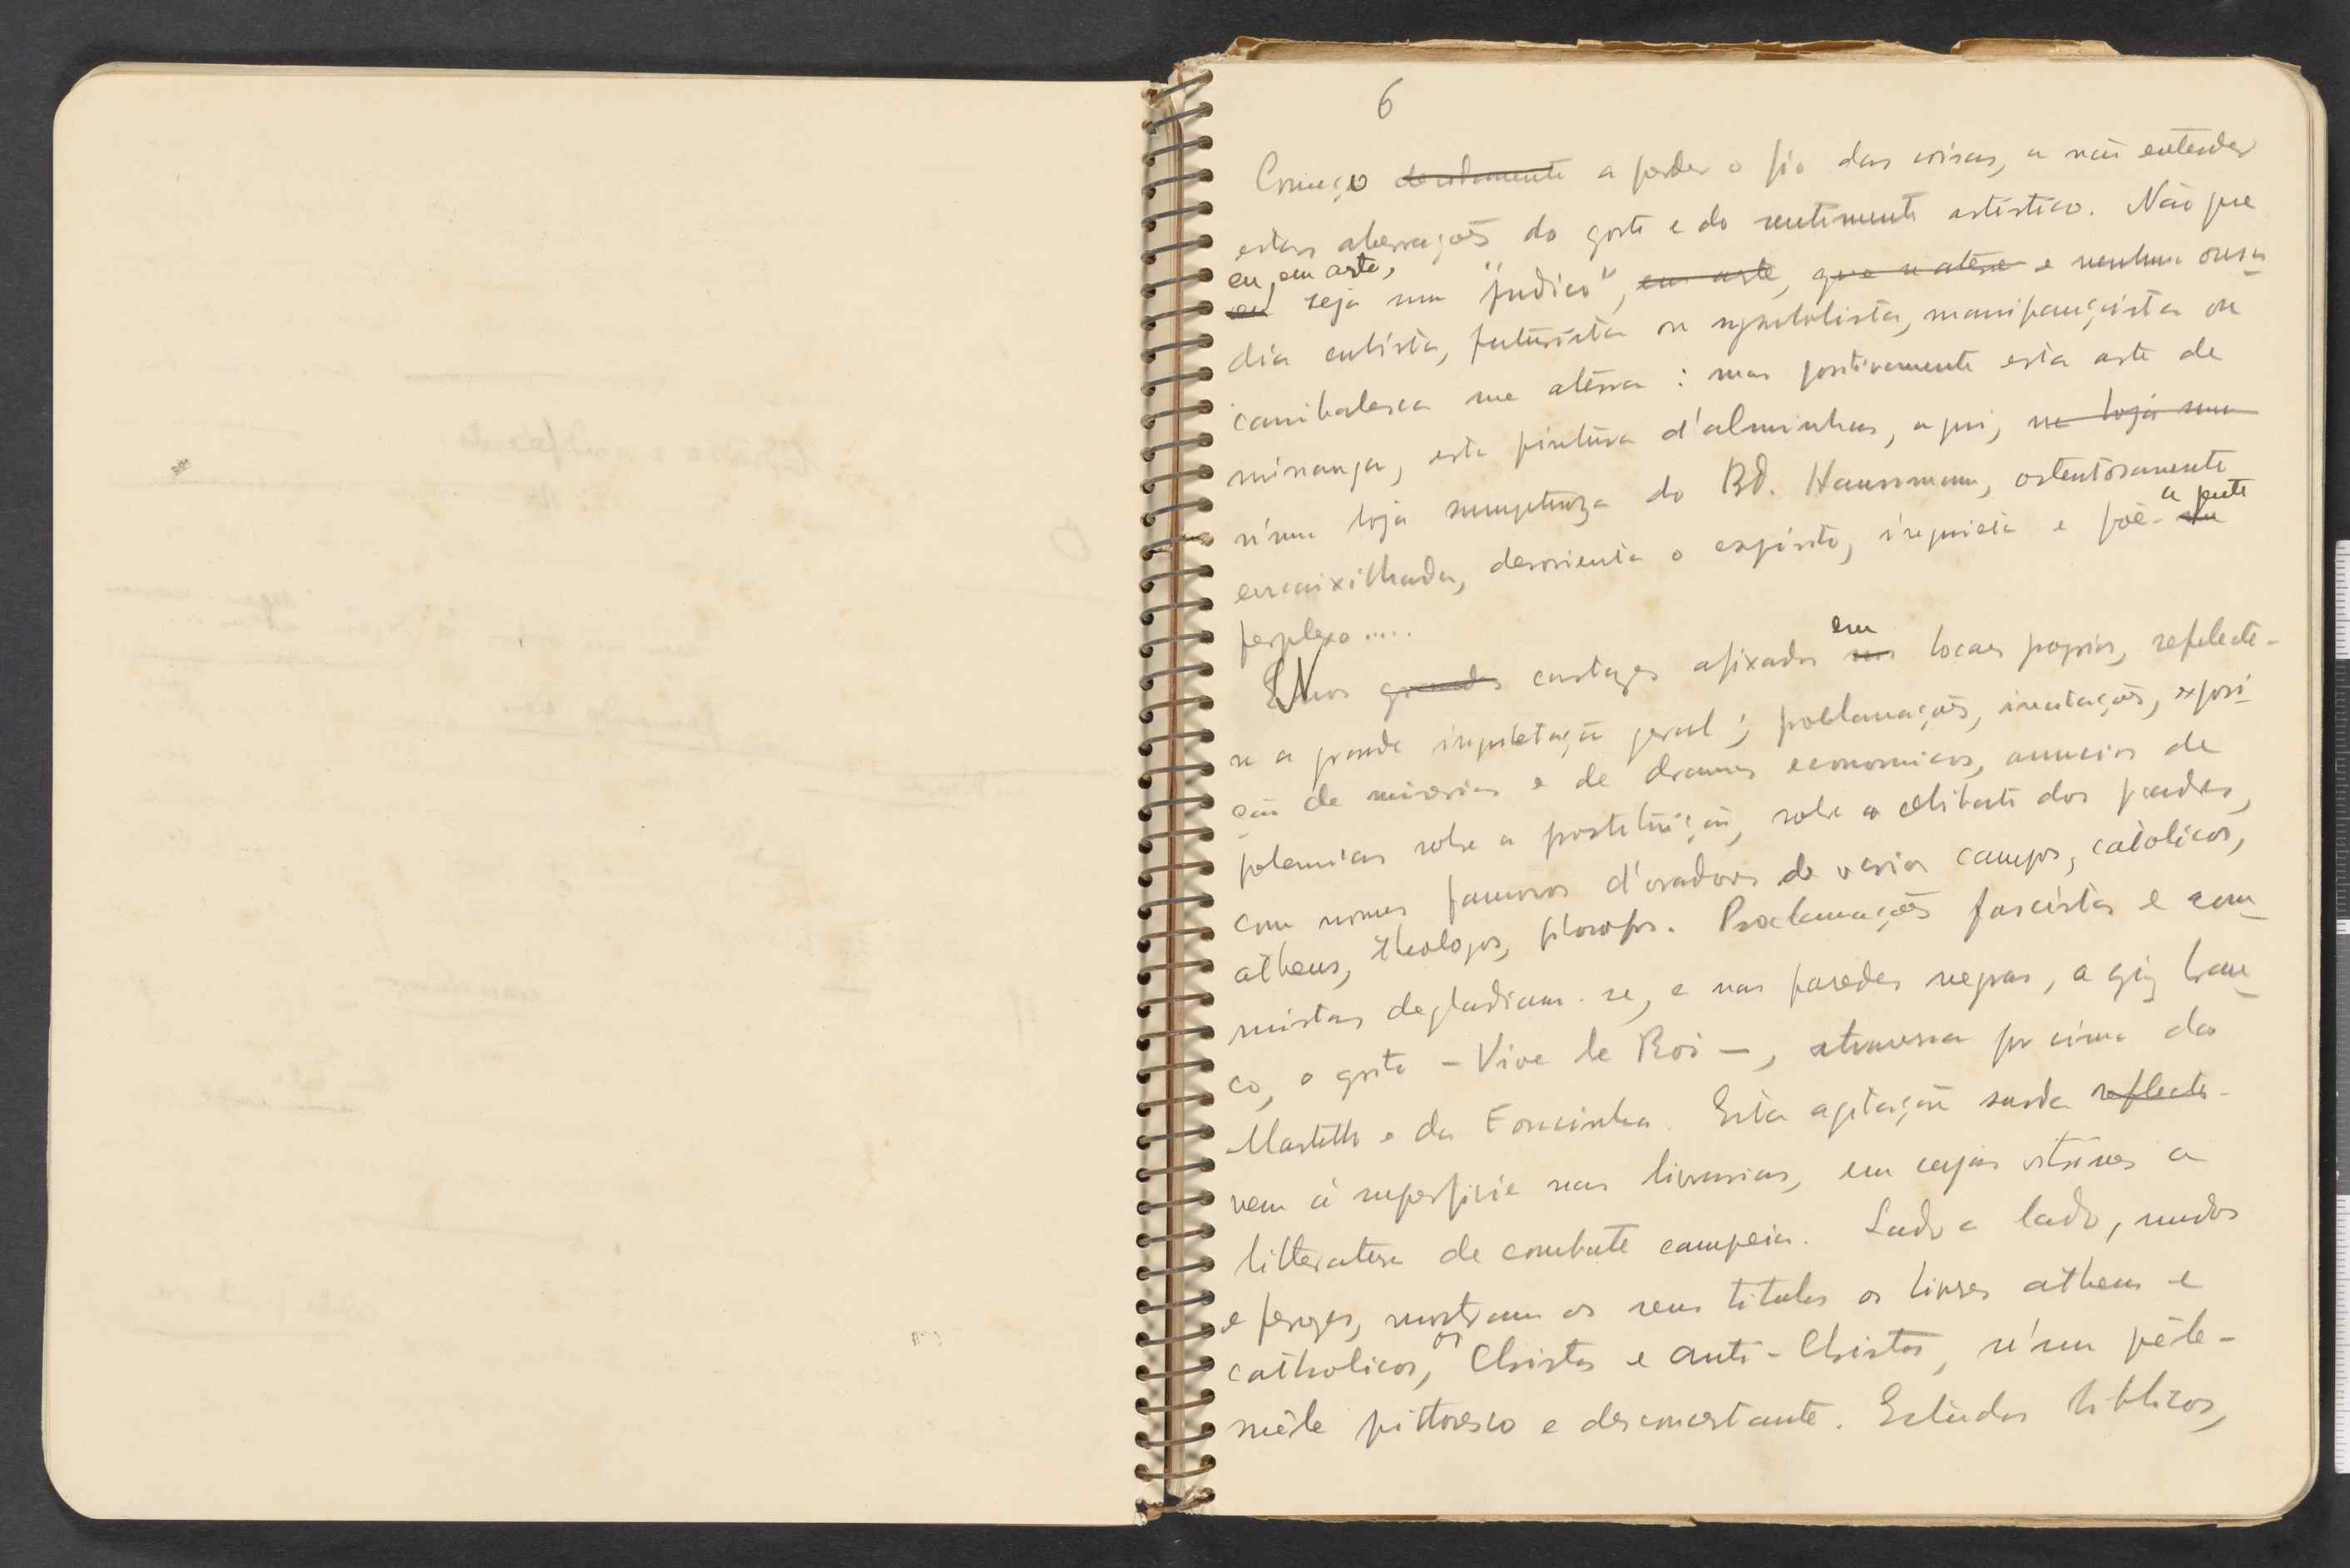 6
Começo decididamente a perder o fio das coisas, a não entender
estas aberrações do gosto e do sentimento artistico. Não que
eu, em arte,
eu seja um "pudico", em arte, que se aterre e nenhuma ousa-
dia cubista, futurista ou symbolista, manipançista ou
canibalesca me atérra: mas positivamente esta arte de
missanga, esta pintura d'alminhas, aqui, na loja num
n'uma loja sumptuoza do Bd. Haussmann, ostentosamente
encaixilhada, desorienta o espirito, inquieta e põe-me
a gente
perplexo.....
Nos grandes cartazes afixados nos locaes proprios, reflecte-
em
se a grande inquietação geral; proclamações, incitações, exposi-
ção de miserias e de dramas economicos, anuncios de
polemicas sobre a prostituição, sobre o celibato dos padres,
com nomes famosos d'oradores de varios campos, catolicos,
atheus, theologos, filosofos. Proclamações fascistas e com-
mistas degladiam-se, e nas paredes negras, a giz bran-
co, o grito - Vive le Roi -, atravessa por cima do
Martello e da Foucinha. Esta agitação surda reflecte-
vem á superficie nas livrarias, em cujas vitrines a
litteratura de combate campeia. Lado a lado, mudos
e ferozes, mostram os seus titulos os livres atheus e
catholicos, os Christos e anti-Christos, n'um pêle-
mêle pittoresco e desconcertante. Estudos biblicos,